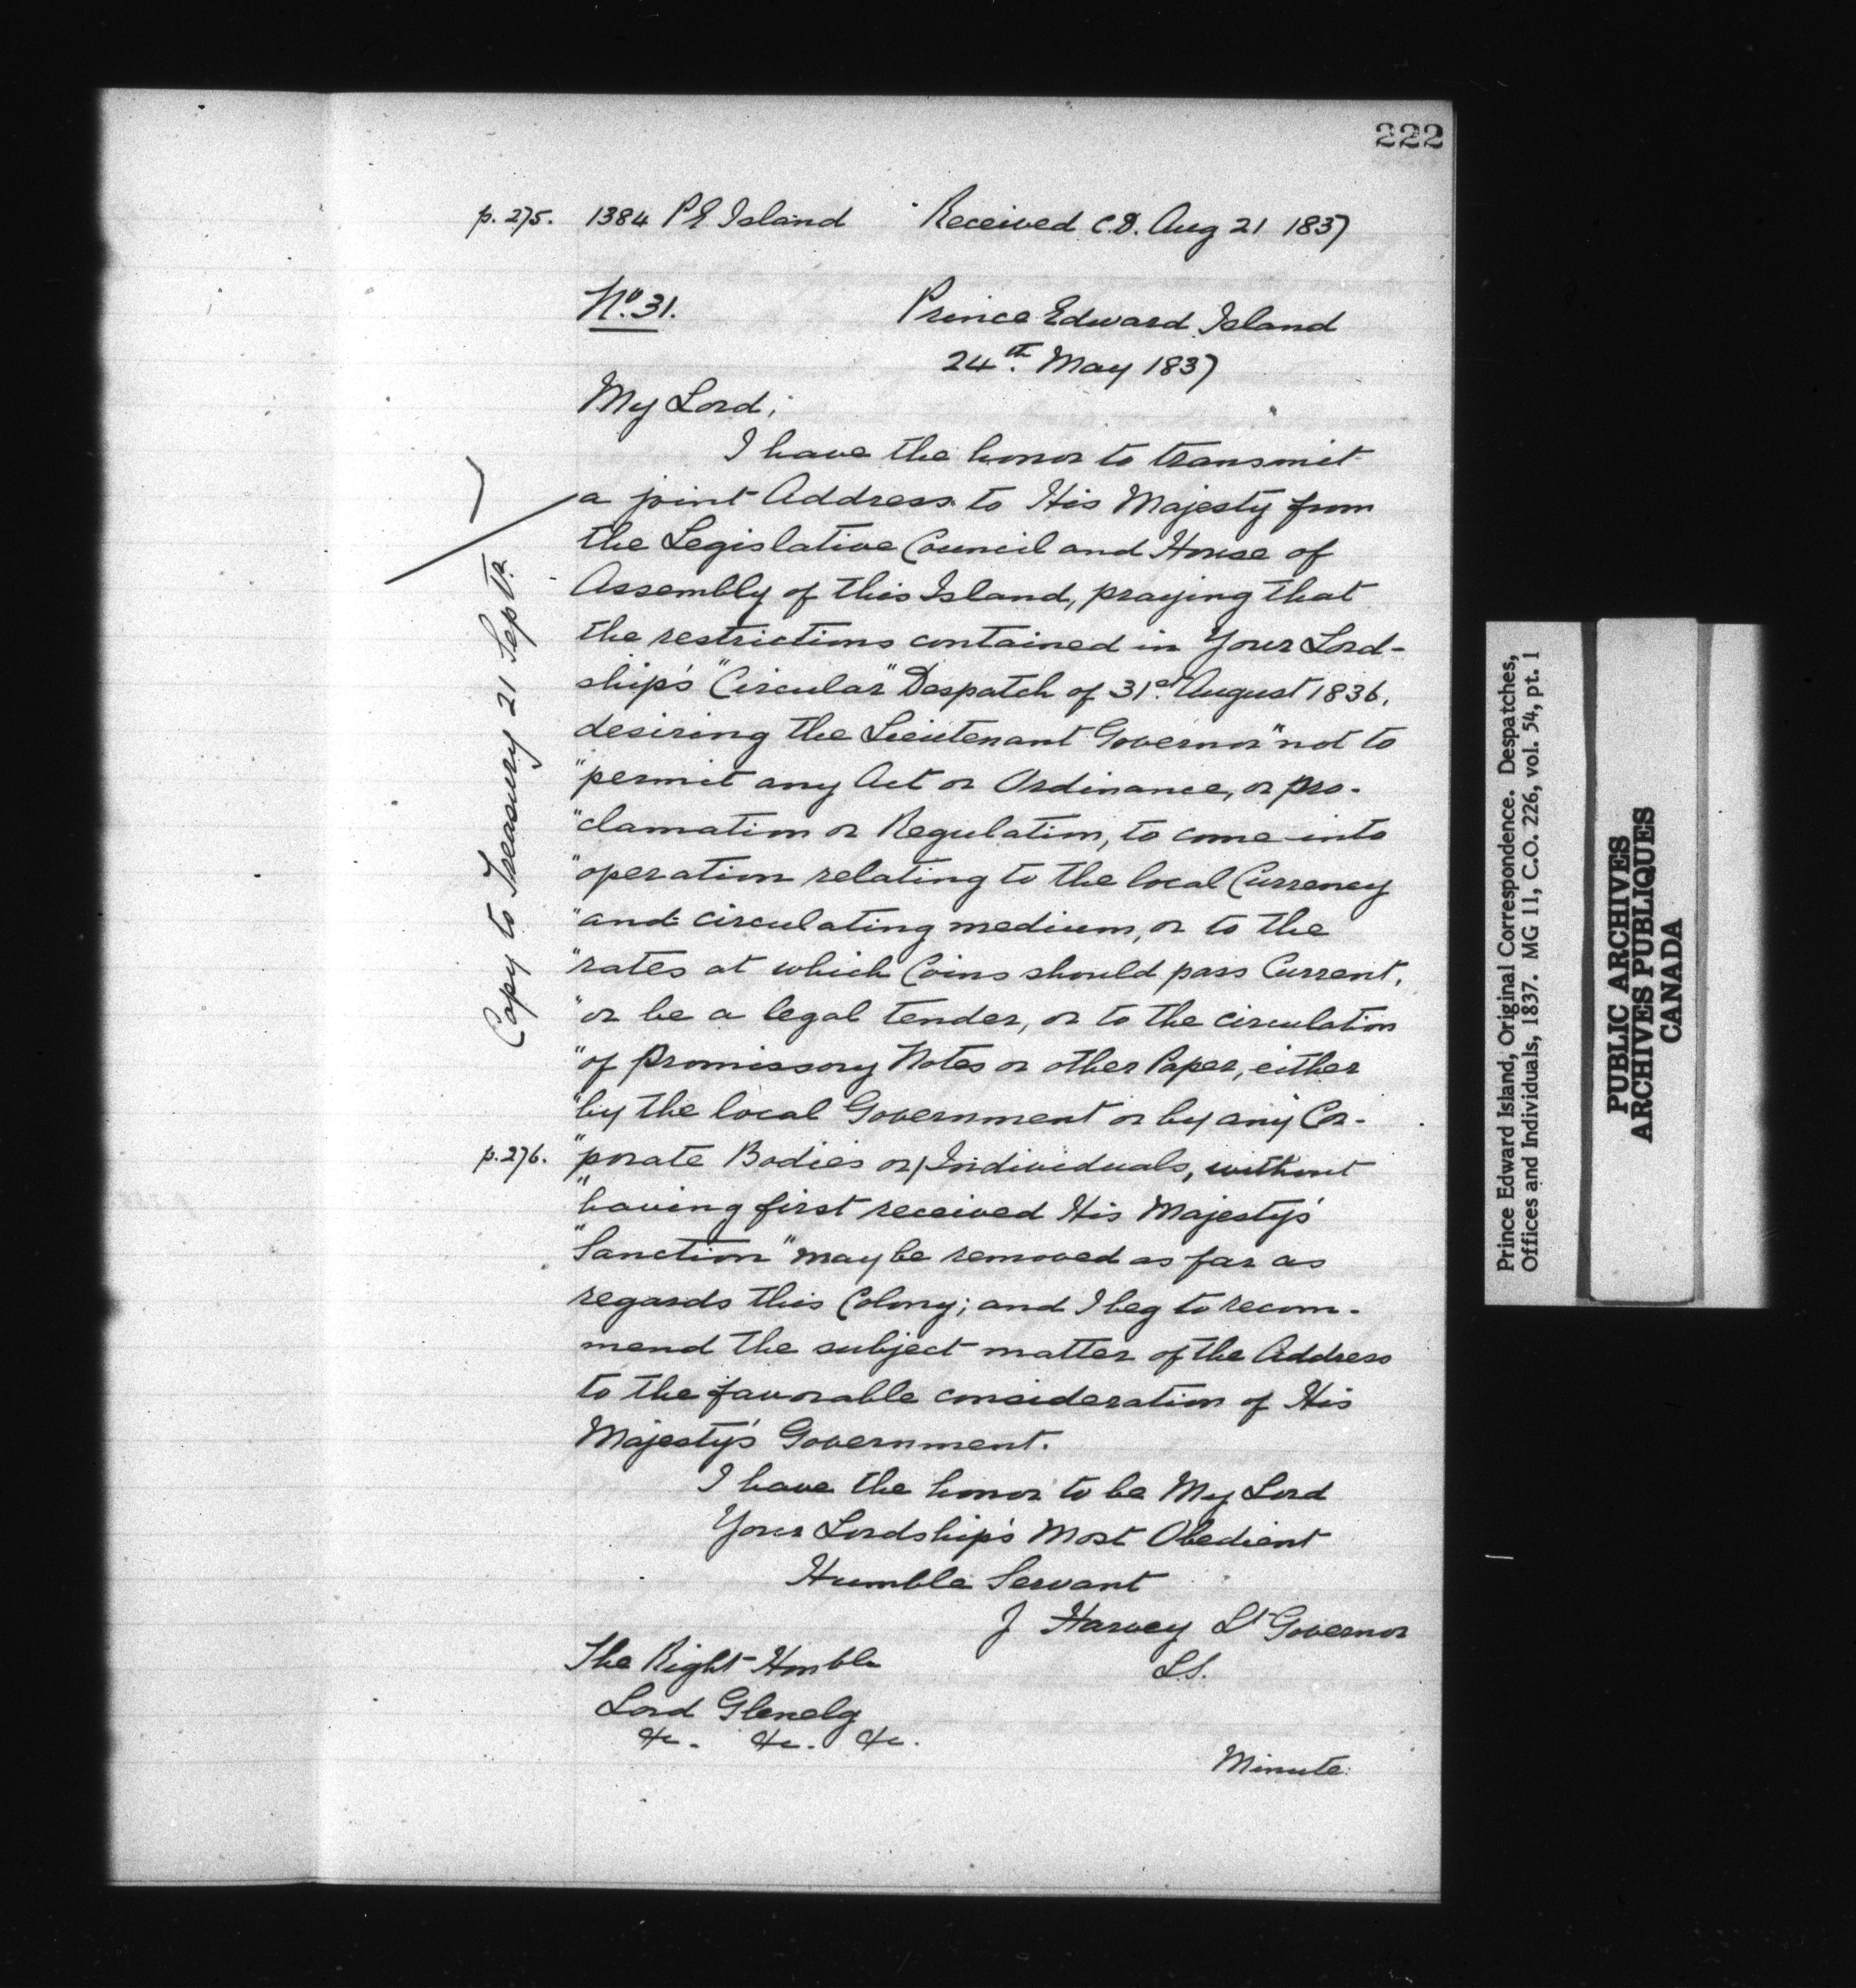 222
p.275. 1384 P E Island Received C.D. Aug 21 1837
No. 31. Prince Edward Island
24th. May 1837
My Lord;
I have the honor to transmit
a joint Address to His Majesty from
the Legislative Council and House of
Assembly of this Island, praying that
the restrictions contained in Your Lord-
ship's "Circular" Despatch of 31st. August 1836,
desiring the Lieutenant Governor "not to
"permit any Act or Ordinance, or pro-
"clamation or Regulation, to come into
"operation relating to the local Currency
"and circulating medium, or to the
"rates at which Coins should pass Current,
"or be a legal tender, or to the circulation
"of Promissory Notes or other Paper, either
"by the local Government or by any Cor-
p.276. "porate Bodies or/Individuals, without
"having first received His Majesty's
"Sanction" may be removed as far as
regards this Colony; and I beg to recom-
mend the subject matter of the Address
to the favorable consideration of His
Majesty's Government.
I have the honor to be My Lord
Your Lordship's Most Obedient
Humble Servant
J Harvey Lt Governor
The Right Honble L.S.
Lord Glenelg
&c. &c. &c.
Minute:
Copy to Treasury 21 Septr.
Prince Edward Island, Original Correspondence. Despatches,
Offices and Individuals, 1837. MG 11, C.O. 226, vol. 54, pt. 1
PUBLIC ARCHIVES
ARCHIVES PUBLIQUES
CANADA